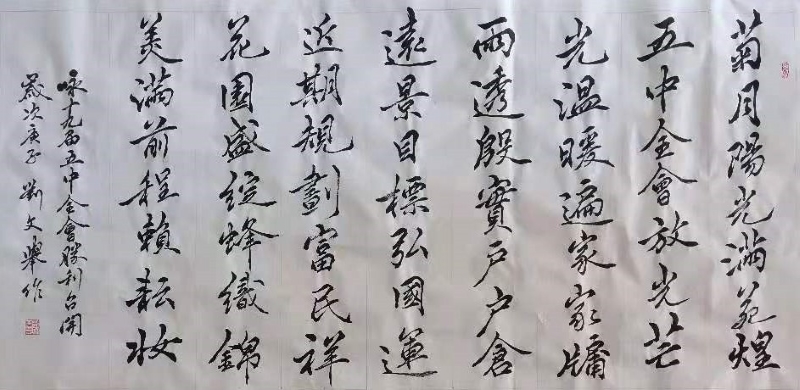 菊月陽光滿苑煌
五中全會放光芒
光温暖遍家家牖
雨透殷實戶戶倉
遠景目標弘國運
近期規劃富民祥
花園盛綻蜂織錦
美滿前程賴耘妝
咏十九届五中全會勝利召開
歲次庚子 劉文舉作